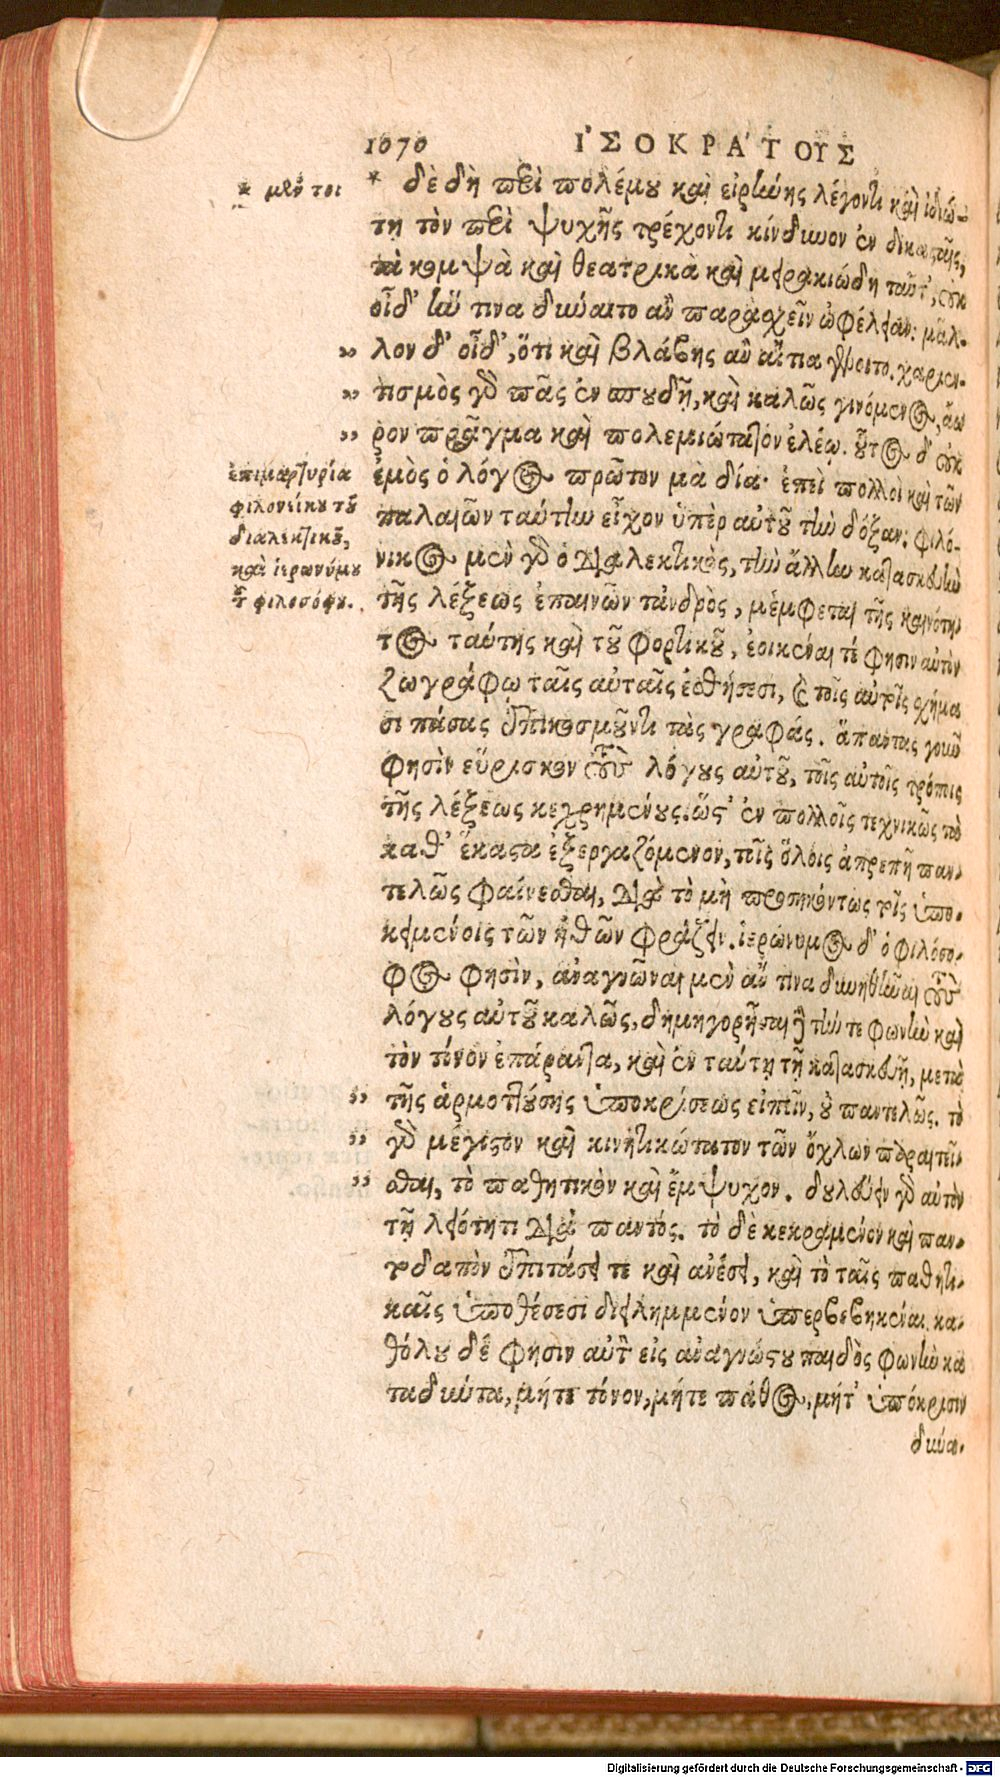 1070 ἸΣΟΚΡΑ'ΤΟΥΣ
* μέν τοι
* δὲ δὴ περὶ πολέμου καὶ εἰρήνης λέγοντι καὶ ἰδιώ-
τῃ τὸν περὶ ψυχῆς τρέχοντι κίνδυνον ἐν δικασταῖς,
τὰ κομψὰ καὶ θεατρικὰ καὶ μειρακιώδη ταῦτ', οὐκ
οἶδ' ἥν τινα δύναιτο ἂν παρασχεῖν ὠφέλειαν: μᾶλ-
λον δ' οἶδ', ὅτι καὶ βλάβης ἂν αἴτια γένοιτο. χαριεν-
τισμὸς γὰρ πᾶς ἐν σπουδῇ, καὶ καλῶς γινόμενος, ἄω
ρον πρᾶγμα καὶ πολεμιώτατον ἐλέῳ. οὗτος δ' οὐκ
ἐμὸς ὁ λόγος πρῶτον μὰ δία· ἐπεὶ πολλοὶ καὶ τῶν
παλαιῶν ταύτην εἶχον ὑπὲρ αὐτοῦ τὴν δόξαν: φιλό-
νικος μὲν γὰρ ὁ διαλεκτικὸς, τὴν ἄλλην κατασκευὴν
τῆς λέξεως ἐπαινῶν τἀνδρὸς, μέμφεται τῆς καινότη-
τος ταύτης καὶ τοῦ φορτικοῦ, ἐοικέναι τέ φησιν αὐτὸν
ζωγράφῳ ταῖς αὐταῖς ἐσθήσεσι, καὶ τοῖς αὐτοῖς σχήμα
σι πάσας ἐπικοσμοῦντι τὰς γραφάς. ἅπαντας γοῦν
φησὶν εὕρισκον τοὺς λόγους αὐτοῦ, τοῖς αὐτοῖς τρόποις
τῆς λέξεως κεχρημένους. ὥστ' ἐν πολλοῖς τεχνικῶς τὰ
καθ' ἕκαστα ἐξεργαζόμενον, τοῖς ὅλοις ἀπρεπῆ παν-
τελῶς φαίνεσθαι, διὰ τὸ μὴ προσηκόντως τοῖς ὑπο-
κειμένοις τῶν ἠθῶν φράζειν. ἱερώνυμος δ' ὁ φιλόσο-
φος φησὶν, ἀναγνῶναι μὲν ἄν τινα δυνηθῆναι τοὺς
λόγους αὐτοῦ καλῶς, δημηγορῆσαι δὲ τήν τε φωνὴν καὶ
τὸν τόνον ἐπάραντα, καὶ ἐν ταύτῃ τῇ κατασκευῇ, μετὰ
τῆς ἁρμοττούσης ὑποκρίσεως εἰπεῖν, οὐ παντελῶς. τὸ
γὰρ μέγιστον καὶ κινητικώτατον τῶν ὄχλων παραιτεῖ-
σθαι, τὸ παθητικὸν καὶ ἔμψυχον. δουλεύειν γὰρ αὐτὸν
τῇ λειότητι διὰ παντός. τὸ δὲ κεκραμένον καὶ παν-
τοδαπὸν ἐπιτάσει τε καὶ ἀνέσει, καὶ τὸ ταῖς παθητι-
καῖς ὑποθέσεσι διειλημμένον ὑπερβεβηκέναι. κα-
θόλου δέ φησιν αὐτ̀ εἰς ἀναγνώστου παιδὸς φωνὴν κα
ταδύντα, μήτε τόνον, μήτε πάθος, μήτ' ὑπόκρισιν
δύνα-
ἐπιμαρτυρία
φιλονείκου τοῦ
διαλεκτικοῦ,
καὶ ἱερωνύμου
τοῦ φιλοσόφου.
Digitalisierung gefördert durch die Deutsche Forschungsgemeinschaft - DFG